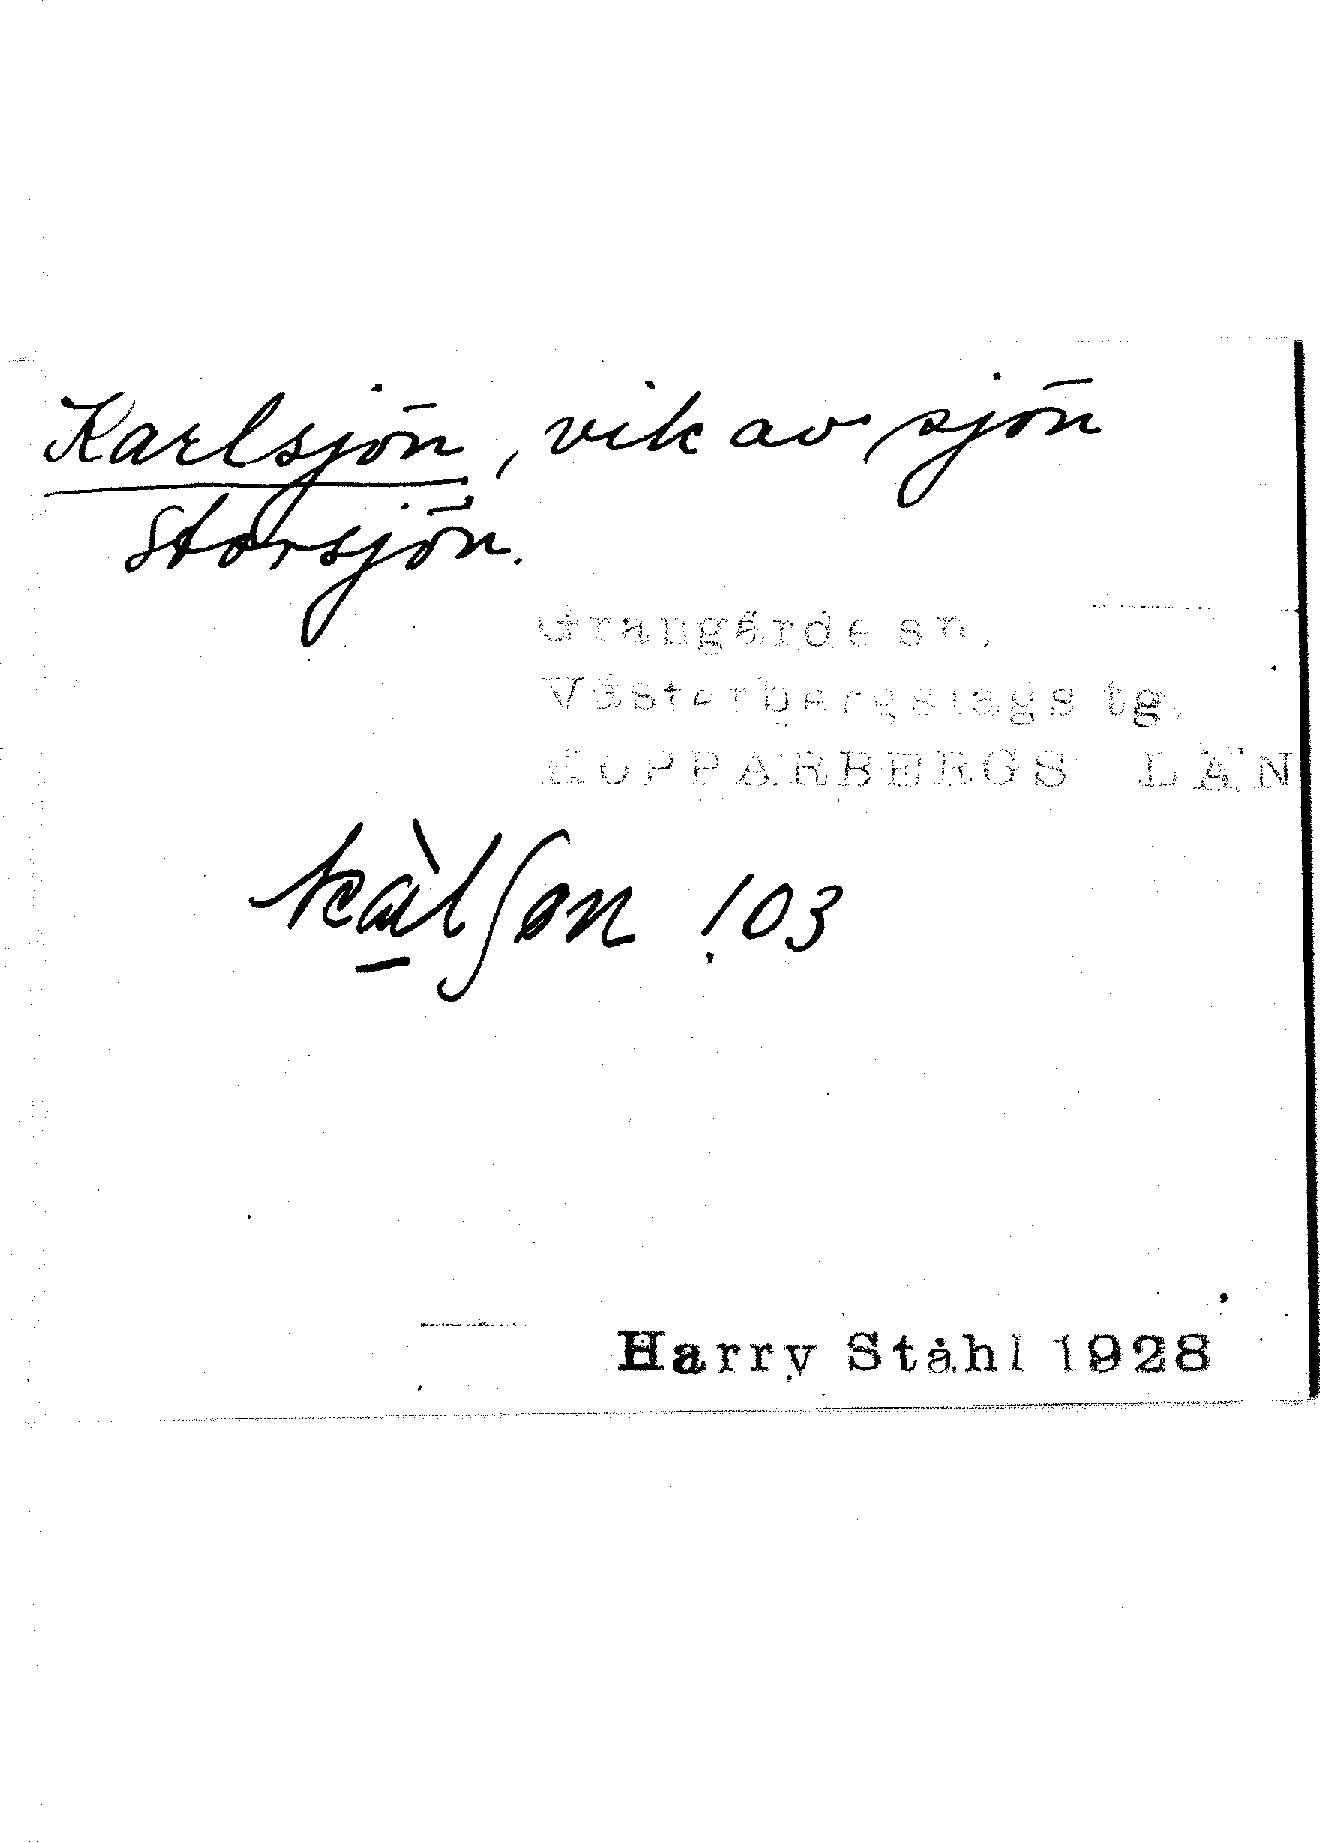 Karlsjön, vik av sjön
Storsjön.
Grangärde sn.
Västerbergslags tg.
KOPPARBERGS LÄN
kàlʃøn !03
Harry Ståhl 1928